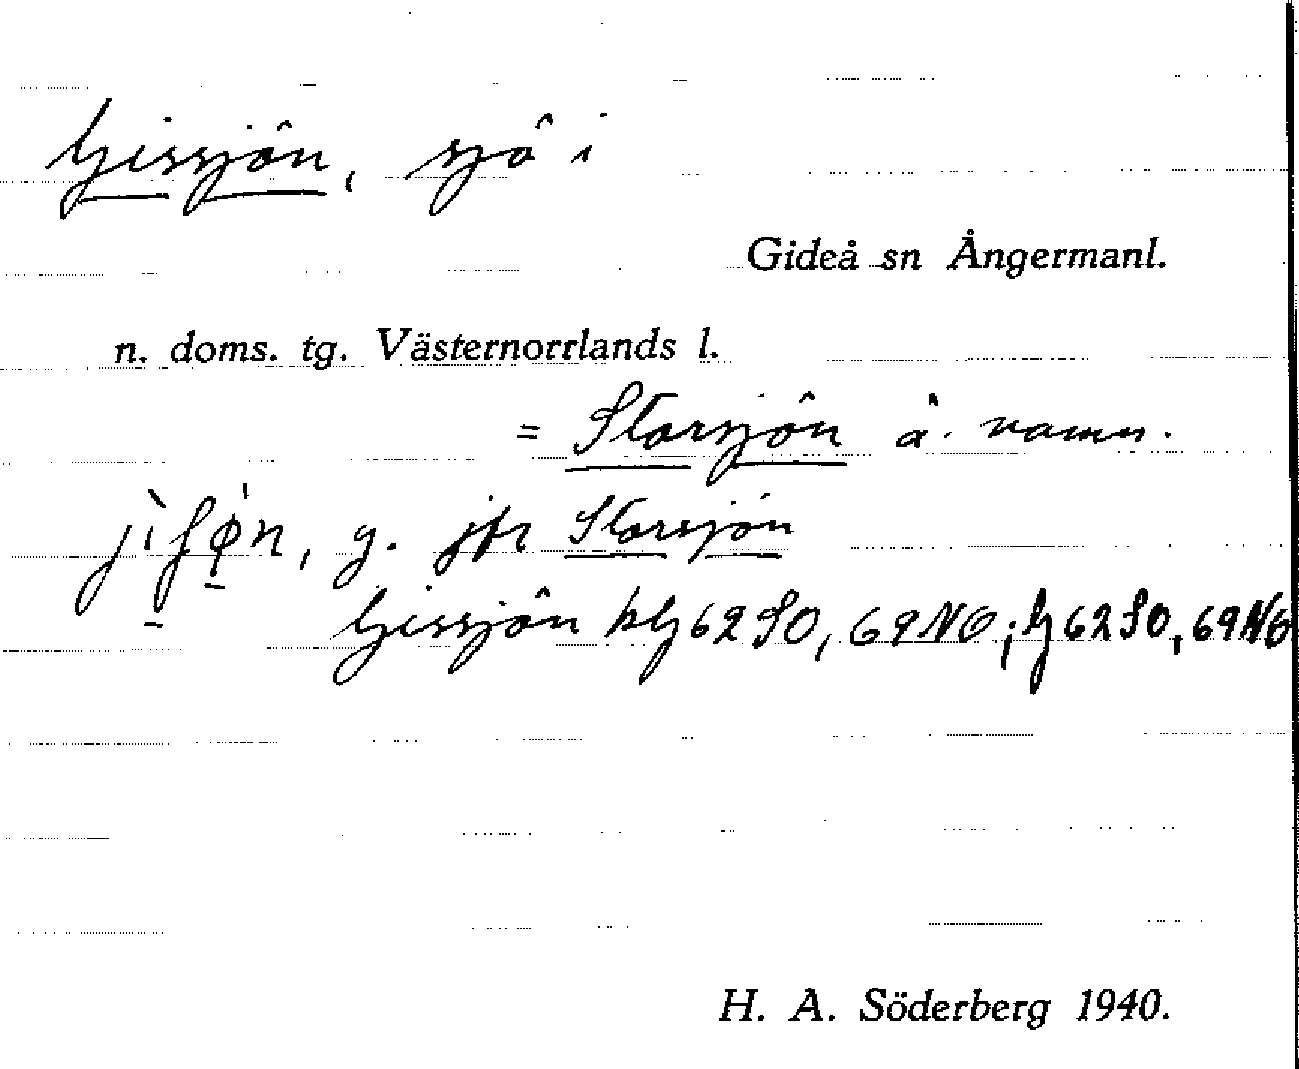 Gissjön, sjö i
Gideå sn Ångermanl.
n. doms. tg. Västernorrlands l.
= Storsjön å. namn.
jìʃǿ̣n, g. jfr Storsjön
Gissjön hG 62 SO, 69 NO; G 62 SO, 69 NO
H. A. Söderberg 1940.